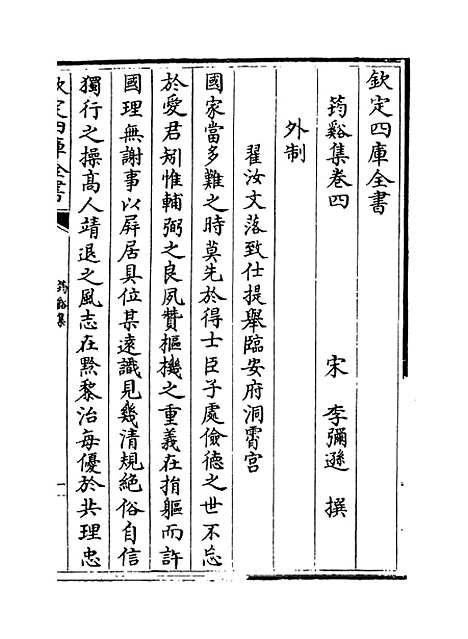 欽定四庫全書
筠谿集卷四
宋 李彌遜 撰
外制
翟汝文落致仕提舉臨安府洞霄宮
國家當多難之時莫先於得士臣子處儉德之世不忘
於愛君矧惟輔弼之良夙贊樞機之重義在捐軀而許
國理無謝事以屛居具位某遠識見幾清規絶俗自信
獨行之操高人靖退之風志在黔黎治每優於共理忠
欽定四庫全書
筠谿集
一